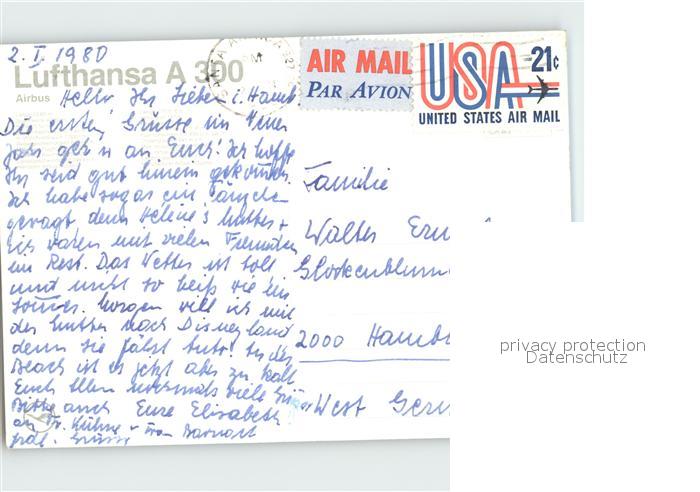 2. I. 1980
Lufthansa A 300
Airbus
Hello Ihr Lieben i. Hamb.
Die ersten Grüsse im Neuen
Jahr geh'n an Euch! Ich hoffe
Ihr seid gut hinein gekommen.
Ich habe sogar ein Tänzchen
gewagt denn Helene's Mutter +
ich waren mit vielen Freunden
im Rest. Das Wetter ist toll
und nicht so heiß wie im
Sommer. Morgen will ich mit
der Mutter nach Disneyland
denn sie fährt Auto. In der
Beach ist es jetzt aber zu kalt
Euch Allen nochmals viele Grüsse
Bitte auch Eure Elisabeth
an Fr. Kühne + Frau
Grüsse
AIR MAIL
PAR AVION
USA 21c
UNITED STATES AIR MAIL
Familie
Walter
2000 Hambu
West Germ
privacy protection
Datenschutz